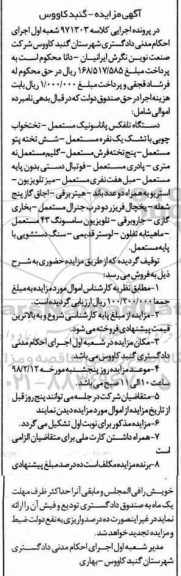 آگهی مزایده - گنبدکاووس
در پرونده اجرایی کلاسه ۹۷۱۳۰۳ شعبه اول اجرای
احکام مدنی دادگستری شهرستان گنبد کاووس شرکت
صنعت نوین نگرش ایرانیان - دانا محکوم است به
پرداخت مبلغ ۱۶۸/۵۱۷/۵۸۵ ریال در حق محکوم له
فرشاد قجقی و پرداخت مبلغ ۱/۰۰۰/۰۰۰ ریال بابت
هزینه اجرا در حق صندوق دولت که در قبال بدهی نامبرده
اموالی شامل:
دستگاه تلفکس پاناسونیک مستعمل - تختخواب
چوبی با تشک یک نفره مستعمل - شش تخته پتو
مستعمل - پنج تخته فرش مستعمل - گلیم مستعمل نه
متری - پادری مستعمل - فوتبال دستی بدون پایه
مستعمل - مبل هفت نفری مستعمل - میز تلویزیون -
استریو به همراه دو عدد باند - هیتر برقی - اجاق گاز پنج
شعله - یخچال فریزر دو درب جنرال مستعمل - بخاری
گازی - جاروبرقی - تلویزیون سامسونگ ۴۳ مستعمل
- ماهیتابه تفلون - لوستر قدیمی - سنگ دستشویی با
پایه مستعمل.
توقیف گردیده که از طریق مزایده حضوری به شرح
ذیل به فروش می رسد:
۱- مطابق نظریه کارشناس اموال مورد مزایده به مبلغ
جمعا ۱۰۰/۲۰۰/۰۰۰ ریال ارزیابی گردیده است.
۲- مزایده از مبلغ پایه کارشناسی شروع و به بالاترین
قیمت پیشنهادی فروخته می شود.
۳- مکان مزایده در شعبه اول اجرای احکام مدنی
دادگستری گنبد کاووس می باشد.
۴- موعد مزایده روز پنجشنبه مورخه ۹۸/۲/۱۲
ساعت ۱۰ الی ۱۱ صبح می باشد.
۵- متقاضیان شرکت در جلسه می توانند پنج روز قبل
از تاریخ مزایده از اموال مورد مزایده دیدن نمایند
۶- مزایده مذکور برای نوبت اول تشکیل می گردد.
۷- همراه داشتن کارت ملی برای متقاضیان الزامی
است
۸- برنده مزایده مکلف است ده درصد مبلغ پیشنهادی
خویش را فی المجلس و مابقی آنرا حداکثر ظرف مهلت
یک ماه به صندوق دادگستری تودیع و فیش آن را ارائه
نماید در غیر اینصورت ده درصد واریزی به نفع دولت ضبط
و مزایده تجدید خواهد شد.
مدیر شعبه اول اجرای احکام مدنی دادگستری
شهرستان گنبد کاووس - بهاری